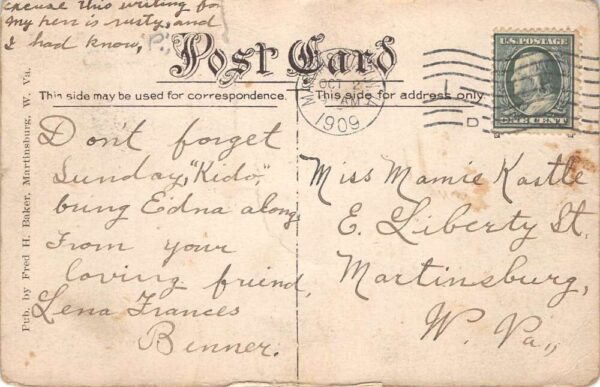 excuse this writing for
my pen is rusty, and
I had know,
Post Card
This side may be used for correspondence.
This side for address only
Pub. by Fred H. Baker, Martinsburg, W. Va.
Don't forget
Sunday, "Kido,"
bring Edna along.
From your
loving friend,
Lena Frances
Benner.
OCT
AM
1909
D
U.S. POSTAGE
ONE CENT
Miss Mamie Kastle
E. Liberty St.
Martinsburg,
W. Va,,